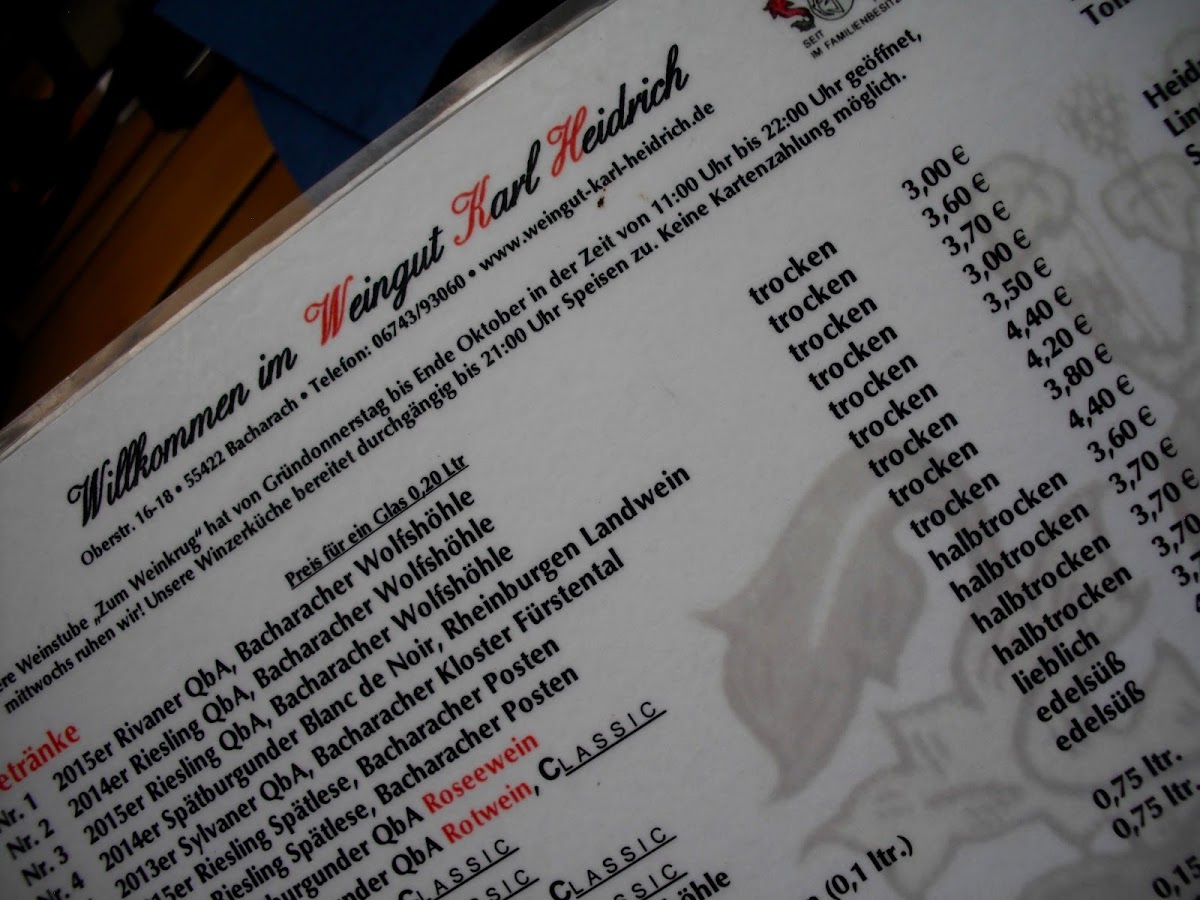 SEIT
IM FAMILIENBESITZ
Willkommen im Weingut Karl Heidrich
Oberstr. 16-18 • 55422 Bacharach • Telefon: 06743/93060 • www.weingut-karl-heidrich.de
Weinstube „Zum Weinkrug“ hat von Gründonnerstag bis Ende Oktober in der Zeit von 11:00 Uhr bis 22:00 Uhr geöffnet,
mittwochs ruhen wir! Unsere Winzerküche bereitet durchgängig bis 21:00 Uhr Speisen zu. Keine Kartenzahlung möglich.
Preis für ein Glas 0,20 Ltr
etränke
Nr. 1 2015er Rivaner QbA, Bacharacher Wolfshöhle trocken 3,00 €
Nr. 2 2014er Riesling QbA, Bacharacher Wolfshöhle trocken 3,60 €
Nr. 3 2015er Riesling QbA, Bacharacher Wolfshöhle trocken 3,70 €
Nr. 4 2014er Spätburgunder Blanc de Noir, Rheinburgen Landwein trocken 3,00 €
2013er Sylvaner QbA, Bacharacher Kloster Fürstental trocken 3,50 €
15er Riesling Spätlese, Bacharacher Posten trocken 4,40 €
Riesling Spätlese, Bacharacher Posten trocken 4,20 €
burgunder QbA Roseewein trocken 3,80 €
under QbA Rotwein, CLASSIC trocken 4,40 €
CLASSIC halbtrocken 3,60 €
CLASSIC halbtrocken 3,70 €
halbtrocken 3,70 €
halbtrocken 3,70
lieblich
edelsüß
edelsüß
0,75 ltr.
(0,1 ltr.) 0,75 ltr.
0,15